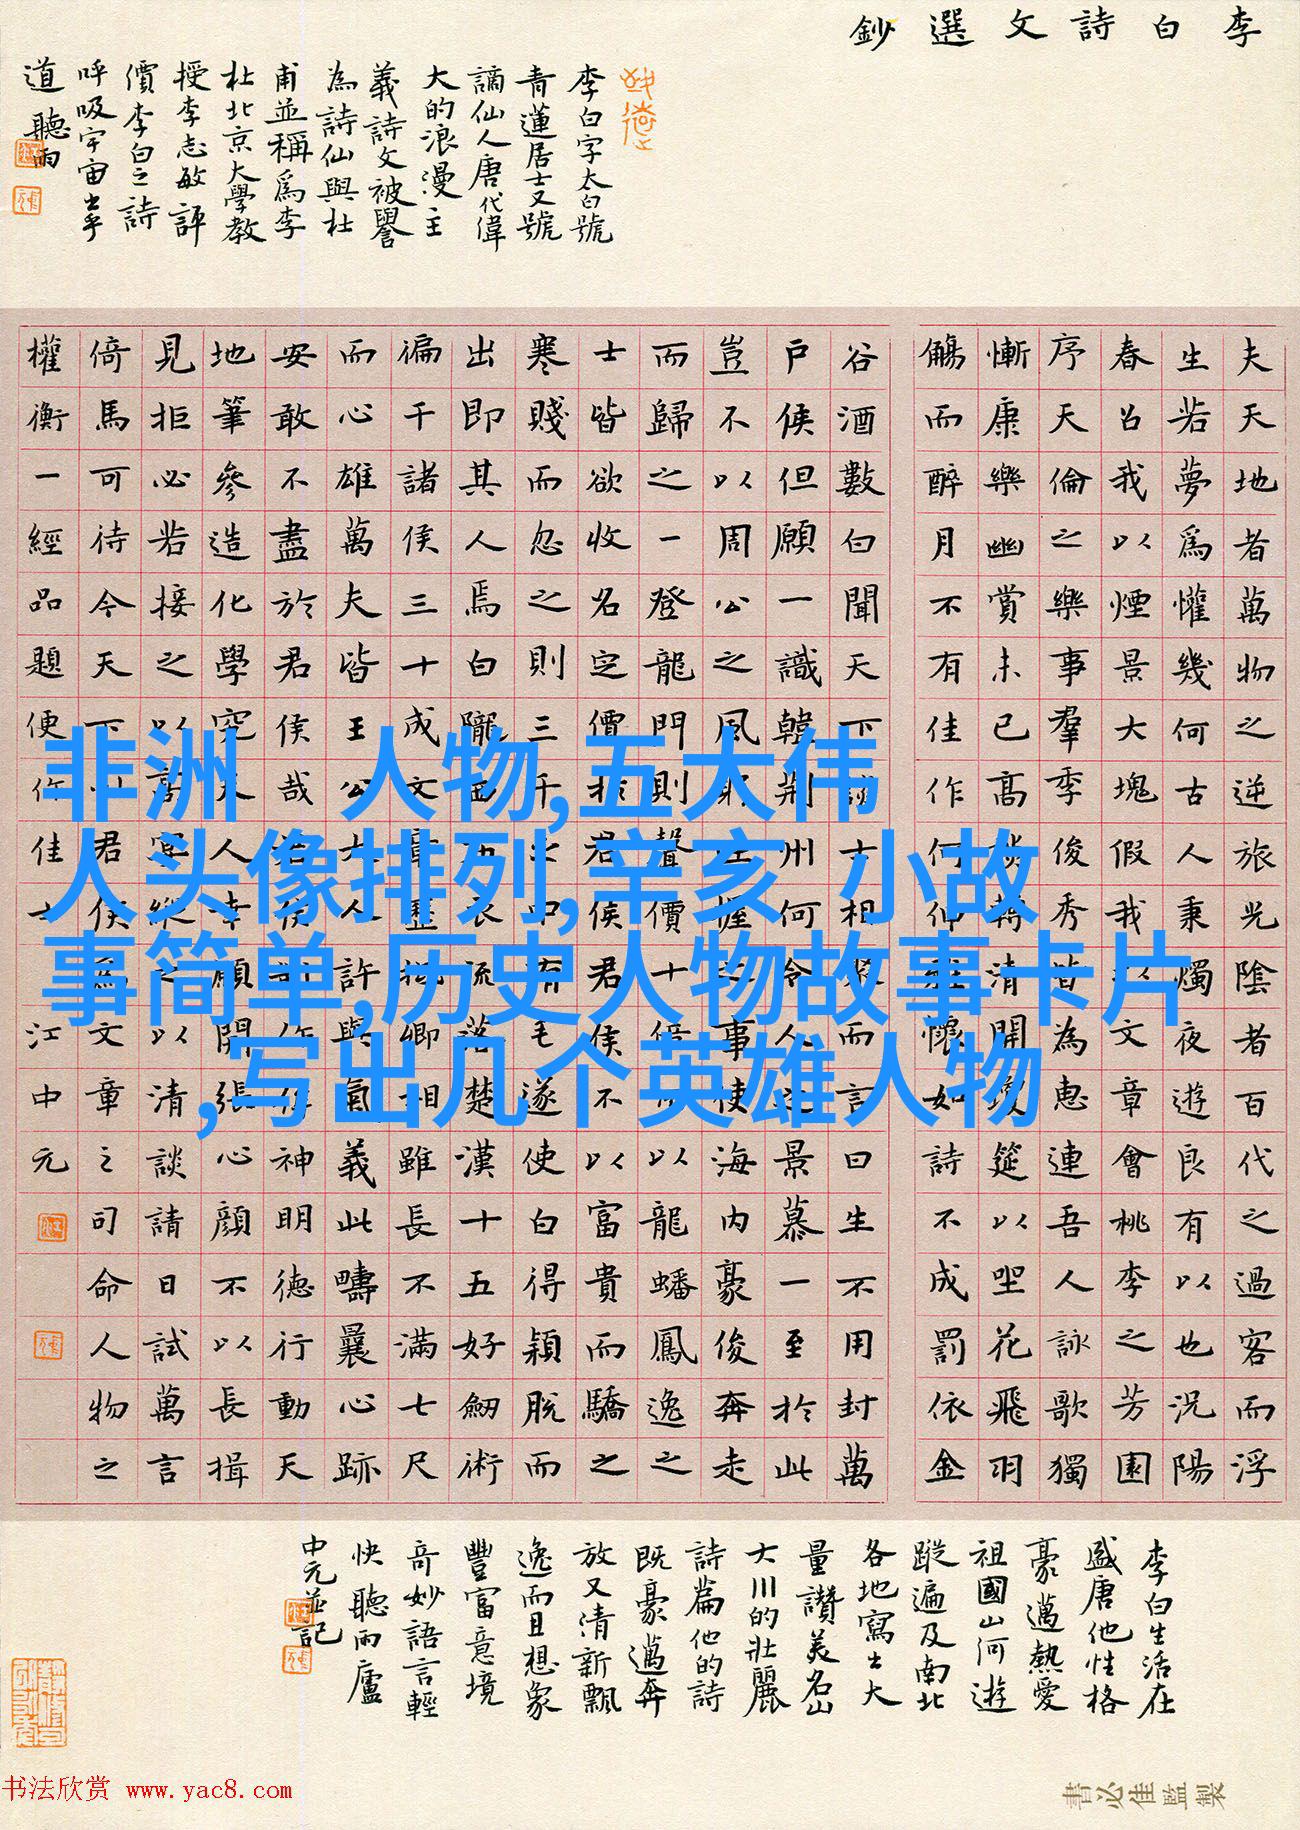 李白詩文選鈔
李白字太白號
青蓮居士又號
謫仙人唐代偉
大的浪漫主
義詩文被譽
為詩仙與杜
甫並稱爲李
杜北京大學教
授李志敏評
價李白之詩
呼吸宇宙出乎
道聽雨
夫天地者萬物之逆旅光陰者百代之過客而浮
生若夢爲懽幾何古人秉燭夜遊良有以也況陽
春召我以煙景大塊假我以文章會桃李之芳園
序天倫之樂事羣季俊秀皆為惠連吾人詠歌獨
慚康樂幽賞未已高談轉清開瓊筵以坐花飛羽
觴而醉月不有佳作何伸雅懷如詩不成罰依金
谷酒數白聞天下談士相聚而言曰生不用封萬
戶侯但願一識韓荊州何令人之景慕一至於此
豈不以周公之風躬吐握之事使海內豪俊奔走
而歸之一登龍門則聲價十倍所以龍蟠鳳逸之
士皆欲收名定價於君侯君侯不以富貴而驕之
寒賤而忽之則三千之中有毛遂使白得穎脫而
出即其人焉白隴西布衣流落楚漢十五好劒術
徧干諸侯三十成文章歷抵卿相雖長不滿七尺
而心雄萬夫皆王公大人許與氣義此疇曩心跡
安敢不盡於君侯哉君侯制作侔神明德行動天
地筆參造化學究天人幸願開張心顏不以長揖
見拒必若接之以高宴縱之以清談請日試萬言
倚馬可待今天下以君侯爲文章之司命人物之
權衡一經品題便作佳士江中元
非洲 人物,五大伟
人头像排列,辛亥 小故
事简单,历史人物故事卡片
,写出几个英雄人物
李白生活在
盛唐他性格
豪邁熱愛
祖國山河遊
蹤遍及南北
各地寫出大
量讚美名山
大川的壯麗
詩篇他的詩
既豪邁奔
放又清新飄
逸而且想象
豐富意境
奇妙語言輕
快聽雨廬
中元並記
书法欣赏 www.yac8.com
書必佳監製